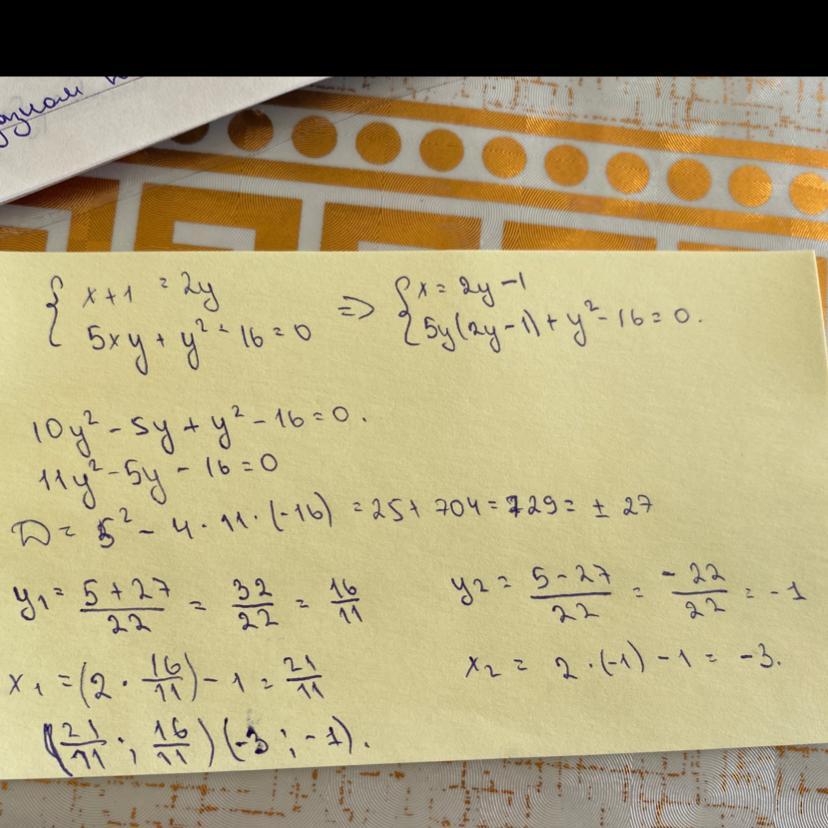 { x+1 = 2y
5xy + y² - 16 = 0 => { x = 2y - 1
5y(2y-1) + y² - 16 = 0.
10y² - 5y + y² - 16 = 0.
11y² - 5y - 16 = 0
D = 5² - 4 · 11 · (-16) = 25 + 704 = 729 = ± 27
y₁ = (5+27)/22 = 32/22 = 16/11
y₂ = (5-27)/22 = -22/22 = -1
x₁ = (2 · 16/11) - 1 = 21/11
x₂ = 2 · (-1) - 1 = -3.
(21/11 ; 16/11) (-3 ; -1).